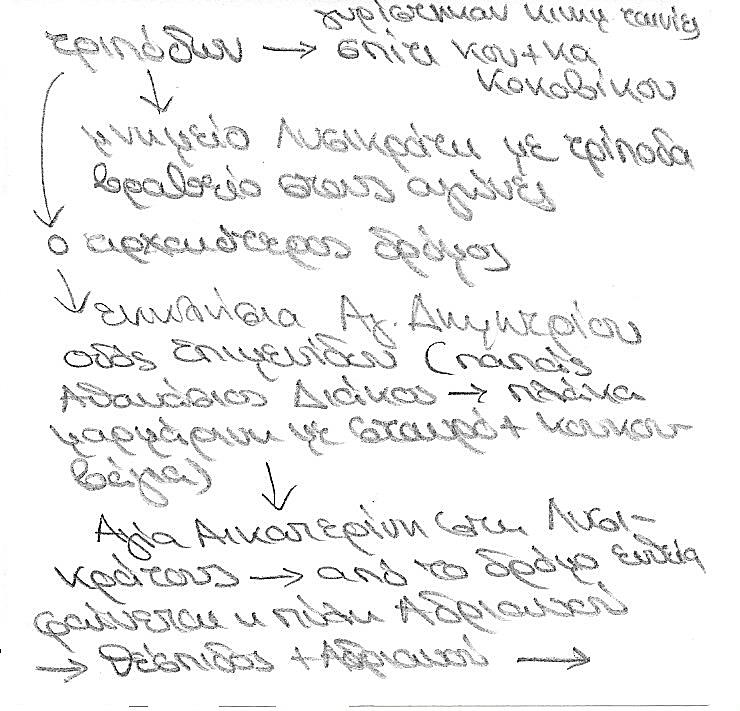 γυρίστηκαν και ταινίες
τριπόδων → σπίτι κου + κα
Κοκοβίκου
μνημείο Λυσικράτη με τρίποδα
βραβείο στους αγώνες
ο αρχαιότερος δρόμος
εκκλησία Αγ. Δημητρίου
οδός Επιμενίδου (παπάς
Αθανάσιος Διάκος → πλάκα
μαρμάρινη με σταυρό + κουκου-
βάγια)
Αγία Αικατερίνη στη Λυσι-
κράτους → από το δρόμο ευθεία
φαίνεται η πύλη Αδριανού
→ Θέσπιδος + Αδριανού →